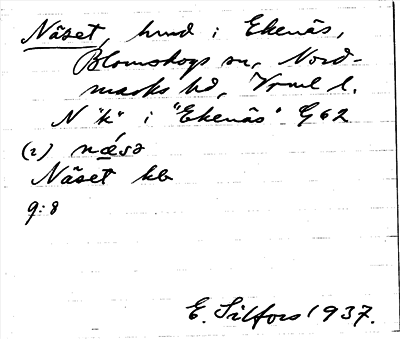 Näset, hmd i Ekenäs,
Blomskogs sn, Nord-
marks hd, Vrml l.
N "k" i "Ekenäs" G62
(2) næ´sə
Näset kb
9:8
E. Silfors 1937.